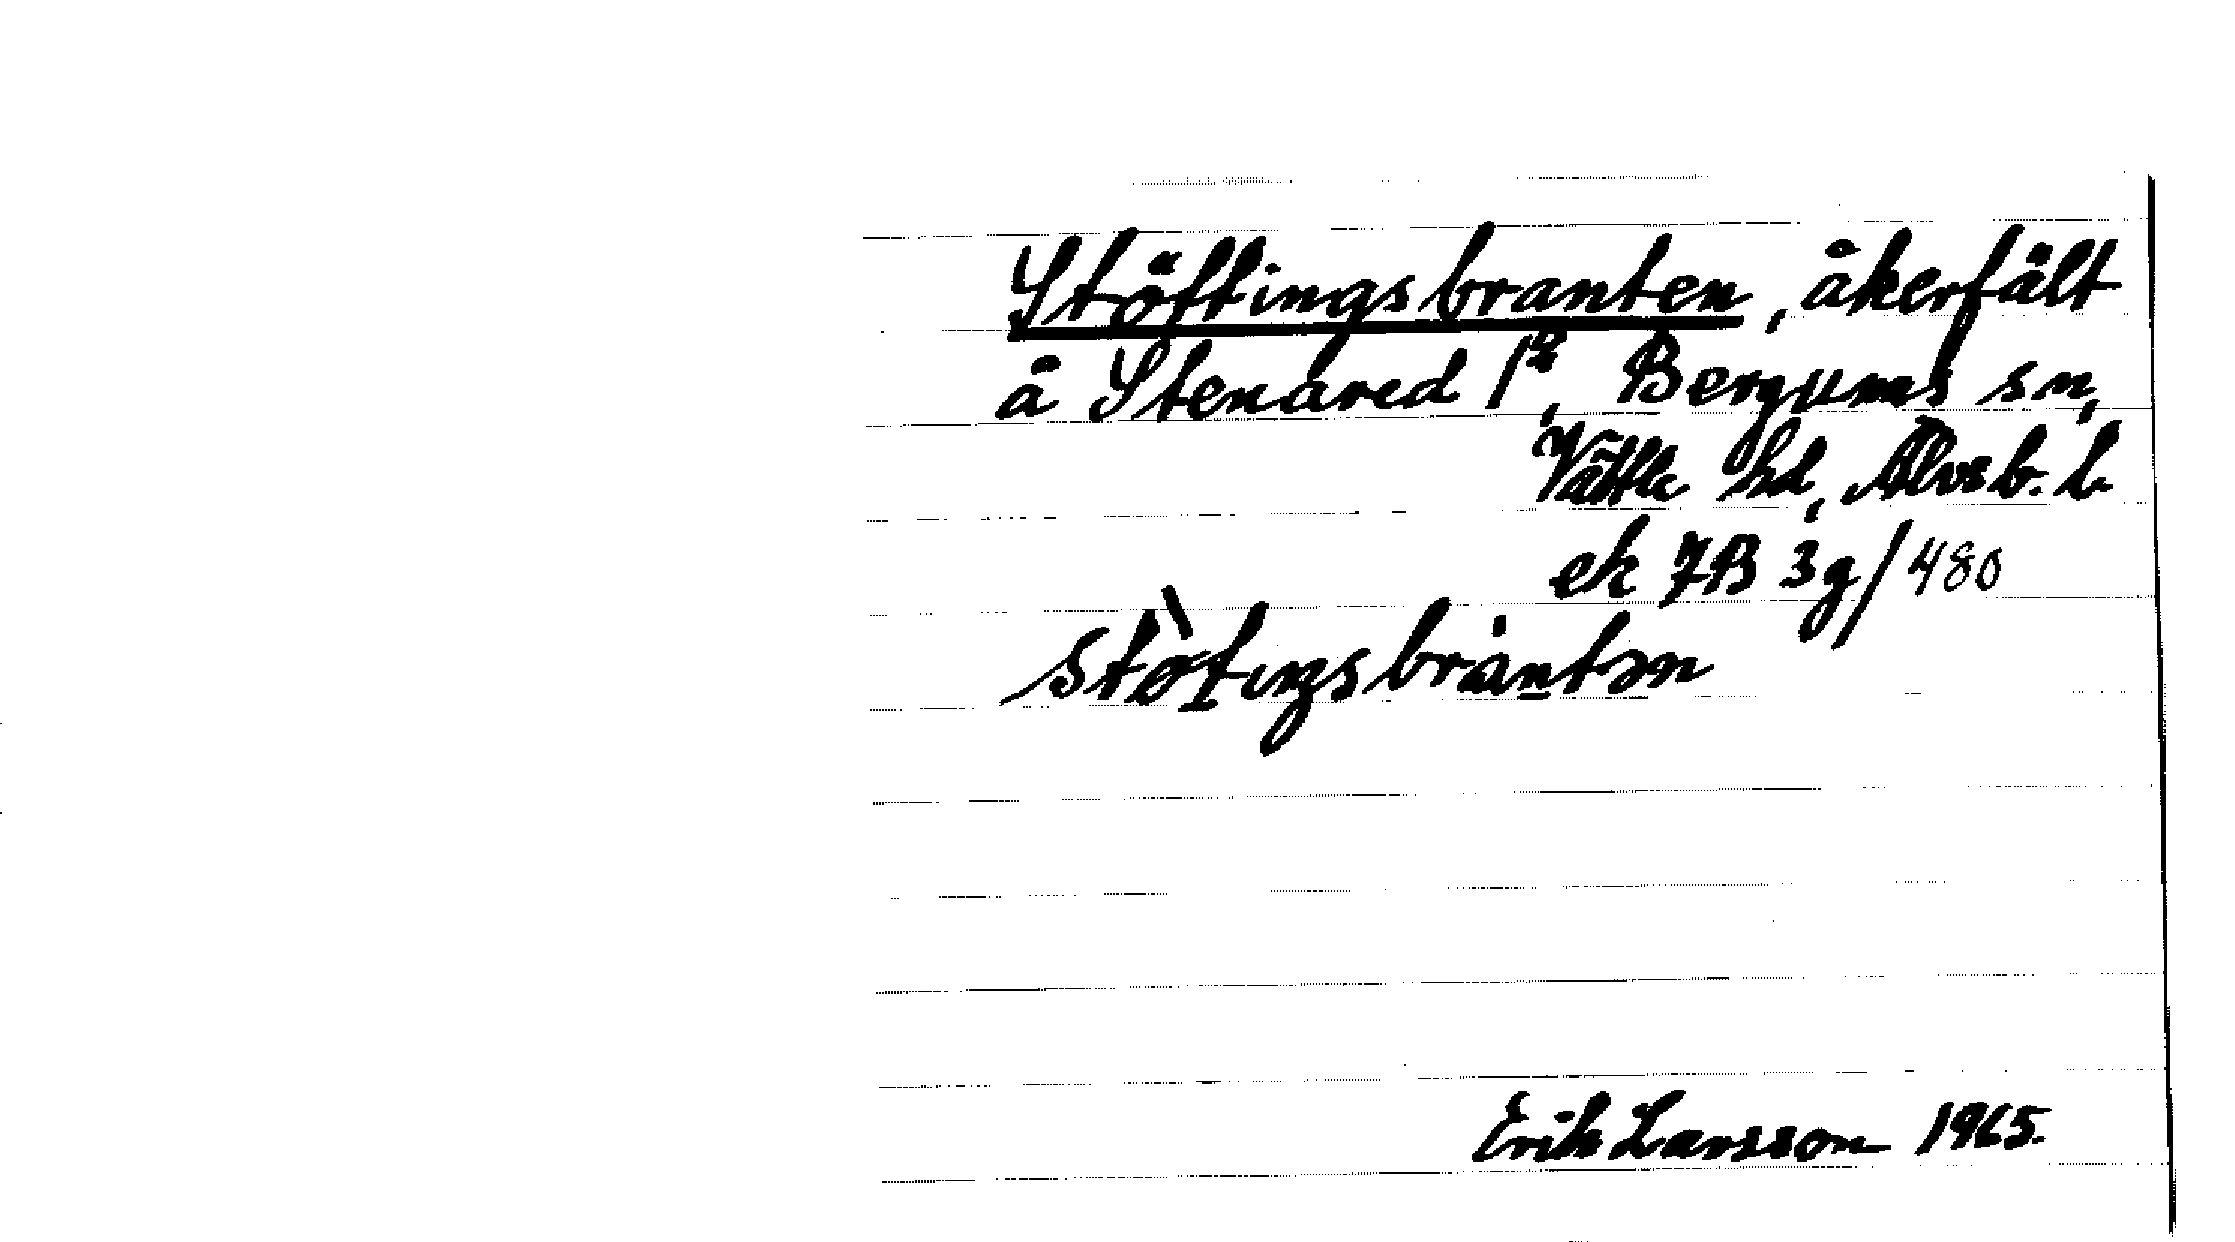 Stöttingsbranten, åkerfält
å Stenared 1², Bergums sn,
Vättle hd, Älvsb. l.
ek 7B 3g/480
stø̀tiŋsbrȧn̲tən
Erik Larsson 1965.